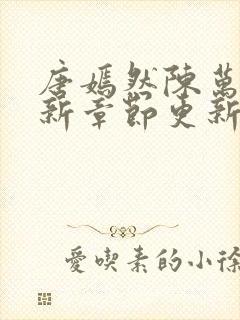 唐嫣然陳萬
新章節更新
愛喫素的小徐